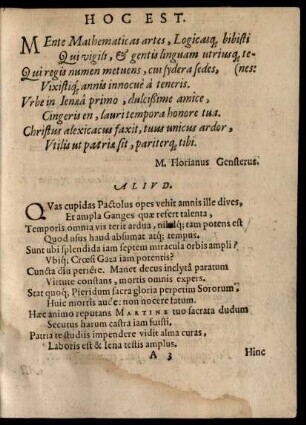 HOC EST.
MEnte Mathematicas artes, Logicasq́; bibisti
Qui vigili, & gentis linguam utriusq́; te-
Qui regis numen metuens, cui sydera sedes, (nes:
Vixistiq́; annis innocuè à teneris.
Vrbe in Ienaâ primo, dulcissime amice,
Cingeris en, lauri tempora honore tua.
Christus alexicacus faxit, tuus unicus ardor,
Vtilis ut patriæ sit, pariterq́; tibi.
M. Florianus Gensterus.
ALIVD.
QVas cupidas Pactolus opes vehit amnis ille dives,
Et ampla Ganges quæ refert talenta,
Temporis omnia vis terit ardua, nihilq́; tam potens est
Quod usus haud absumat atq́; tempus.
Sunt ubi splendida iam septem miracula orbis ampli?
Vbiq́; Crœsi Gaza iam potentis?
Cuncta diu periêre. Manet decus inclytâ paratum
Virtute constans, mortis omnis expers.
Stat quoq́; Pieridum sacra gloria perpetim Sororum
Huic mortis audet non nocere fatum.
Hæc animo reputans MARTINE tuo sacrata dudum
Secutus harum castra iam fuisti.
Patria te studiis impendere vidit alma curas,
Laboris est & Iena testis amplus.
A 3 Hinc